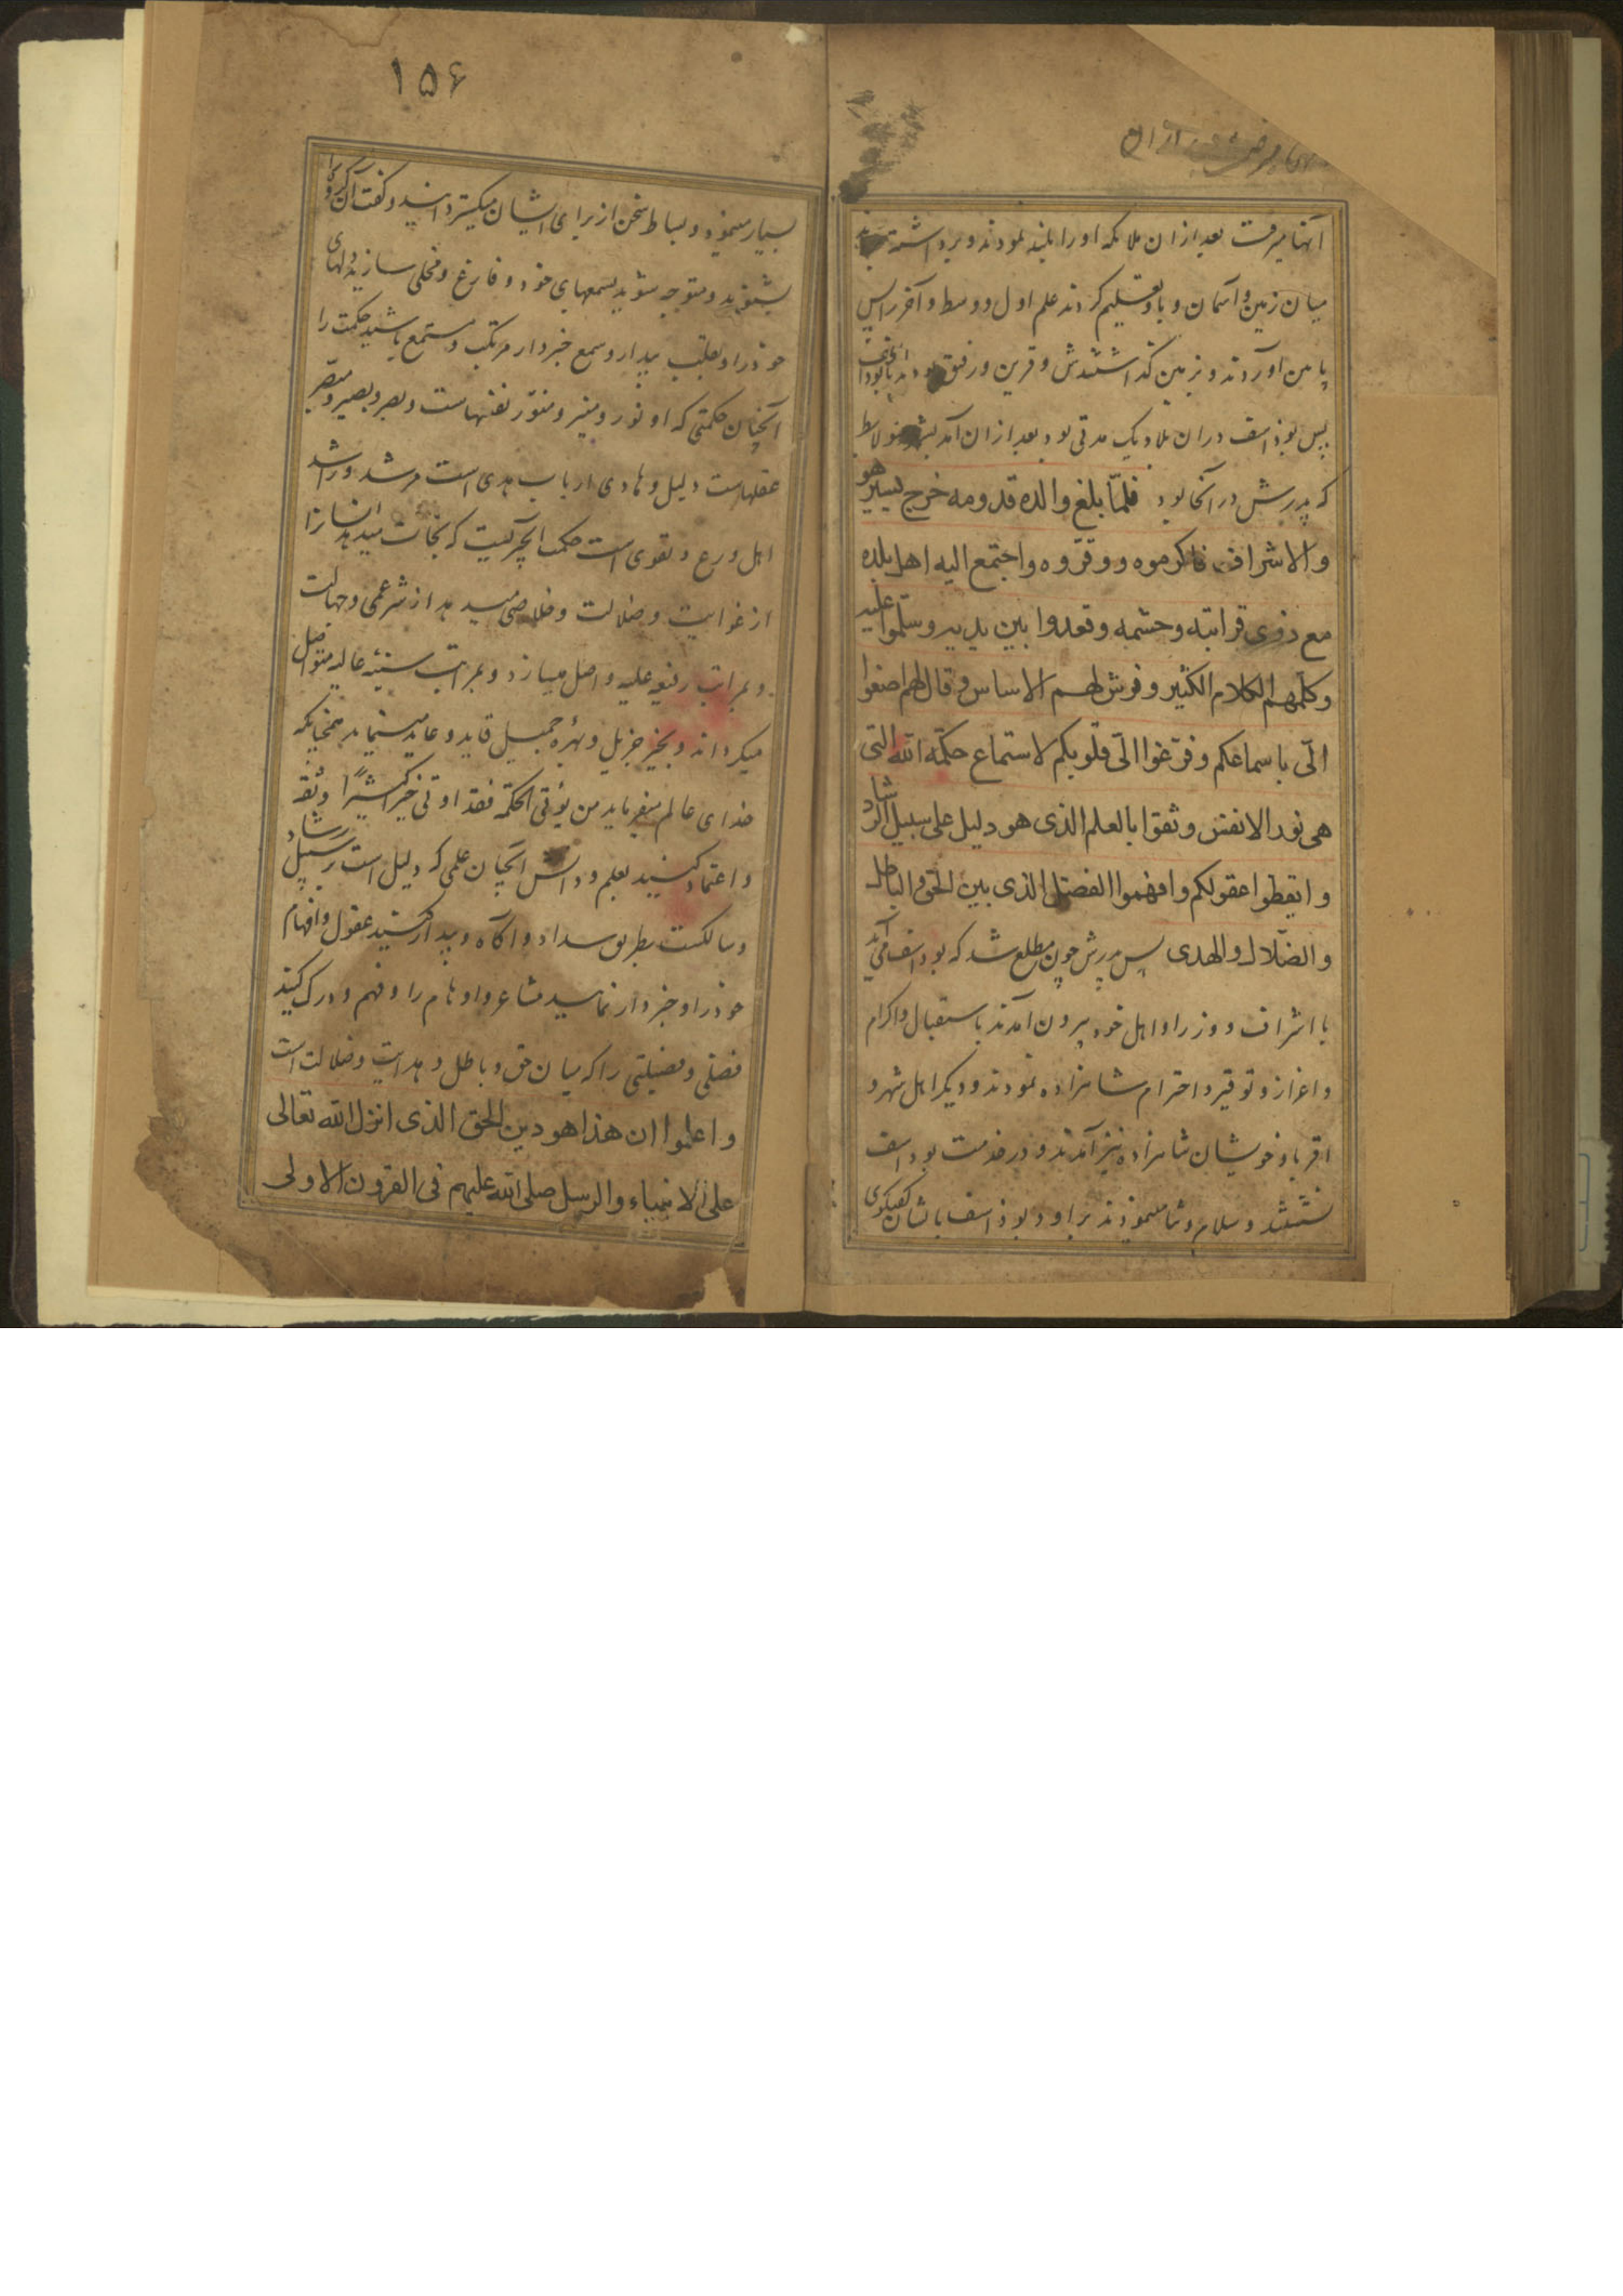 آنها میرفت بعد ازان ملائکه او را بلند نمودند و برداشته
میان زمین و آسمان و باو تعلیم کردند علم اول و وسط و آخر را پس
پایین اوردند و بزمین گذاشتندش و قرین و رفیق بودند با بوذاسف
پس بوذاسف دران بلاد یک مدتی بود بعد ازان آمد بشهر سولابط
که پدرش در آنجا بود فلمّا بلغ والده قدومه خرج لیسیر هو
والاشراف فاکرموه ووقّروه واجتمع الیه اهل بلده
مع ذوی قرابته وحشمه وقعدوا بین یدیه وسلّموا علیه
وکلّمهم الکلام الکثیر وفرش لهم الاساس وقال لهم اصغوا
الّی باسماعکم وفرّغوا الّی قلوبکم لاستماع حکمّة الله التی
هی نور الانفس وثقوا بالعلم الذی هو دلیل علی سبیل الرشاد
وایقظوا عقولکم وافهموا الفصل الذی بین الحق والباطل
والضّلال والهدی پس پدرش چون مطلع شد که بوذاسف می آید
با اشراف و وزرا و اهل خود بیرون آمدند باستقبال و اکرام
و اعزاز و توقیر و احترام شاهزاده نمودند و دیگر اهل شهر و
اقربا و خویشان شاهزاده نیز آمدند و در خدمت بوذاسف
نشستند و سلام و ثنا میمودند بر او و بوذاسف باایشان گفتگوی
۱۵۶
بسیار میمود و بساط سخن از برای ایشان میگسترد انید و گفت آن گروه را
بشنوید و متوجه شوید بسمعهای خود و فارغ و مخلی سازید دلهای
خود را و بقلب بیدار و سمع خبردار مرتکب و مستمع باشید حکمت را
آنچنان حکمتی که او نور و منیر و منوّر نفسهاست و بصر و بصیر و مبصّر
عقلهاست دلیل و هادی ارباب هدی است مرشد و راشد
اهل ورع و تقوی است حکمت آنچیزیست که نجات میدهد انسانرا
از غوایت و ضلالت و خلاصی میدهد از شر عمی و جهالت
و بمراتب رفیعه علیه واصل میسازد و بمراتب سنیّه عالیه متواصل
میگرداند و بخیر جزیل و بهره جمیل قاید و عاید مینماید همچنانکه
خدای عالم میفرماید من یؤتی الحکمة فقد اوتی خیرا کثیرًا و ثقه
و اعتماد کنید بعلم و دانش آنچنان علمی که دلیل است بر سبیل رشاد
و سالکست بطریق سداد و آگاه و بیدار کنید عقول و افهام
خود را و خبردار نمایید مشاعر و اوهام را و فهم و درک کنید
فضلی و فضیلتی را که میان حق و باطل و هدایت و ضلالت است
واعلموا ان هذا هو دین الحق الذی انزل الله تعالی
علی الانبیاء والرسل صلی الله علیهم فی القرون الاولی